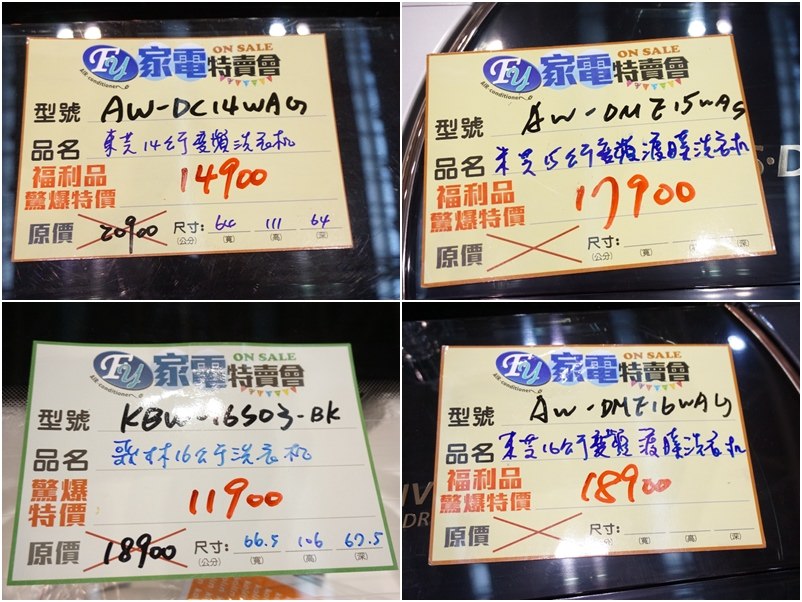 Fy 家電特賣會 ON SALE
AIR-conditioner
型號 AW-DC14WAG
品名 東芝14公斤變頻洗衣机
福利品
驚爆特價 14900
原價 20900 尺寸: 64 111 64
(公分) (寬) (高) (深)
Fy 家電特賣會 ON SALE
AIR-conditioner
型號 AW-DME15WAG
品名 東芝15公斤變頻渡膜洗衣机
福利品
驚爆特價 17900
原價 尺寸:
(公分) (寬) (高) (深)
Fy 家電特賣會 ON SALE
AIR-conditioner
型號 KBW-16S03-BK
品名 歌林16公斤洗衣机
驚爆
特價 11900
原價 18900 尺寸: 66.5 106 67.5
(公分) (寬) (高) (深)
Fy 家電特賣會 ON SALE
AIR-conditioner
型號 AW-DME16WAG
品名 東芝16公斤變頻渡膜洗衣机
福利品
驚爆特價 18900
原價 尺寸:
(公分) (寬) (高) (深)